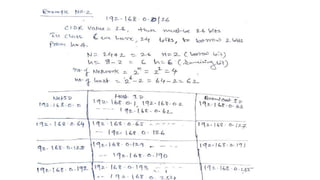 Example No:2
192.168.0.0/26
CIDR value = 26, then must be 26 bits
In class C we have, 24 bits, to borrow 2 bits
from host.
N = 24+2 = 26 n = 2 (borrow bits)
H = 8-2 = 6 h = 6 (remaining bit)
No of Network = 2^n = 2^2 = 4
No of host = 2^h - 2 = 64-2 = 62
Net ID Host ID Broadcast ID
192.168.0.0 192.168.0.1, 192.168.0.2 192.168.0.63
--- 192.168.0.62
192.168.0.64 192.168.0.65 ----- 192.168.0.127
--- 192.168.0.126
192.168.0.128 192.168.0.129 ----- 192.168.0.191
--- 192.168.0.190
192.168.0.192 192.168.0.193 ----- 192.168.0.255
-- 192.168.0.254